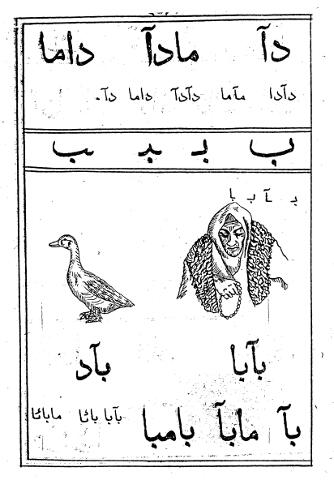 دآ مادآ داما
دآدا مآما دآدآ داما دآ.
ب بـ ـبـ ـب
بـ آ ب با
بآبا بآد
بآ مابآ بامبا بآبا